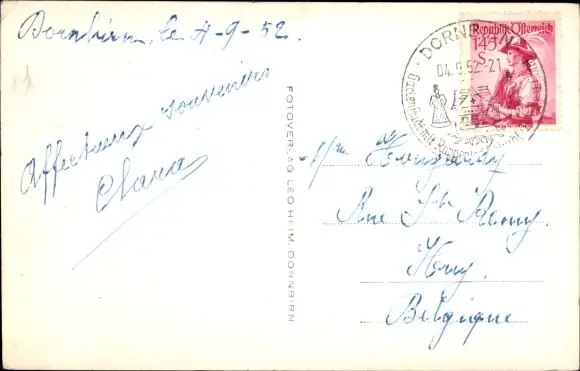 Dornbirn, le 4-9-52.
Affectueux souvenirs
Clara
FOTOVERLAG LEO HEIM, DORNBIRN
DORNBIRN
04.9.52-21
Republik Österreich
145
S
Rue St Remy.
Huy.
Belgique